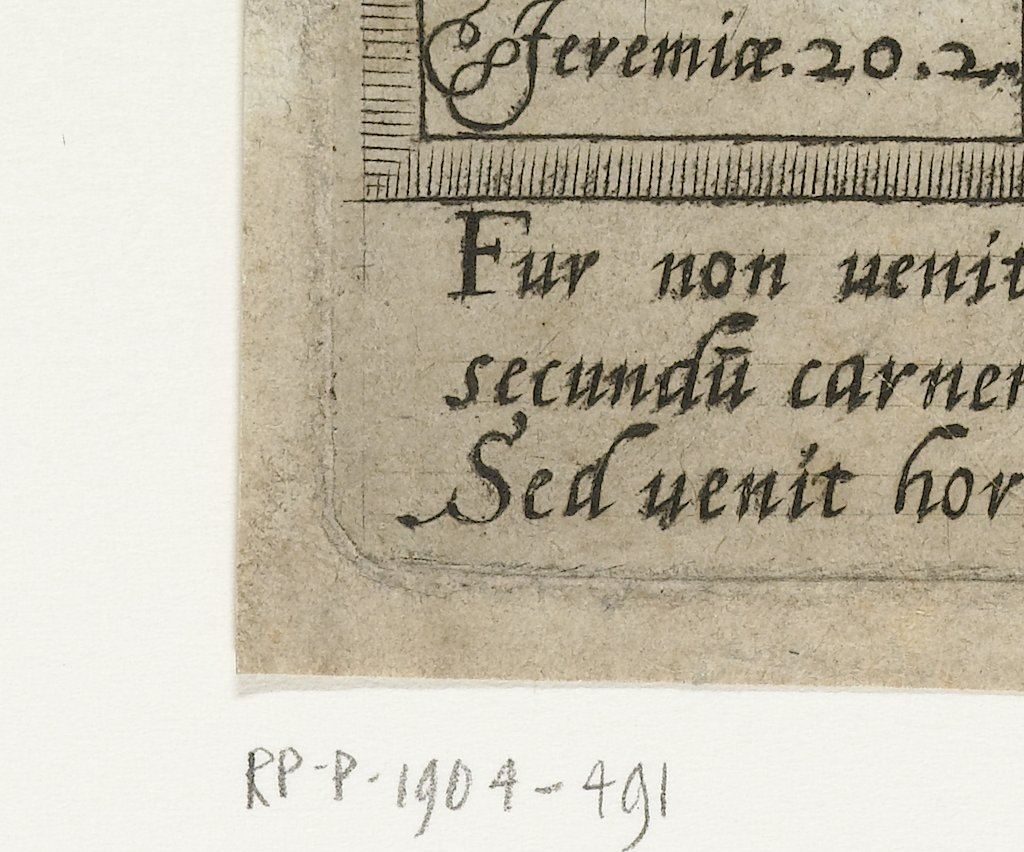 Jeremiæ. 20. 2
Fur non uenit
secundū carne
Sed uenit hor
RP-P-1904-491